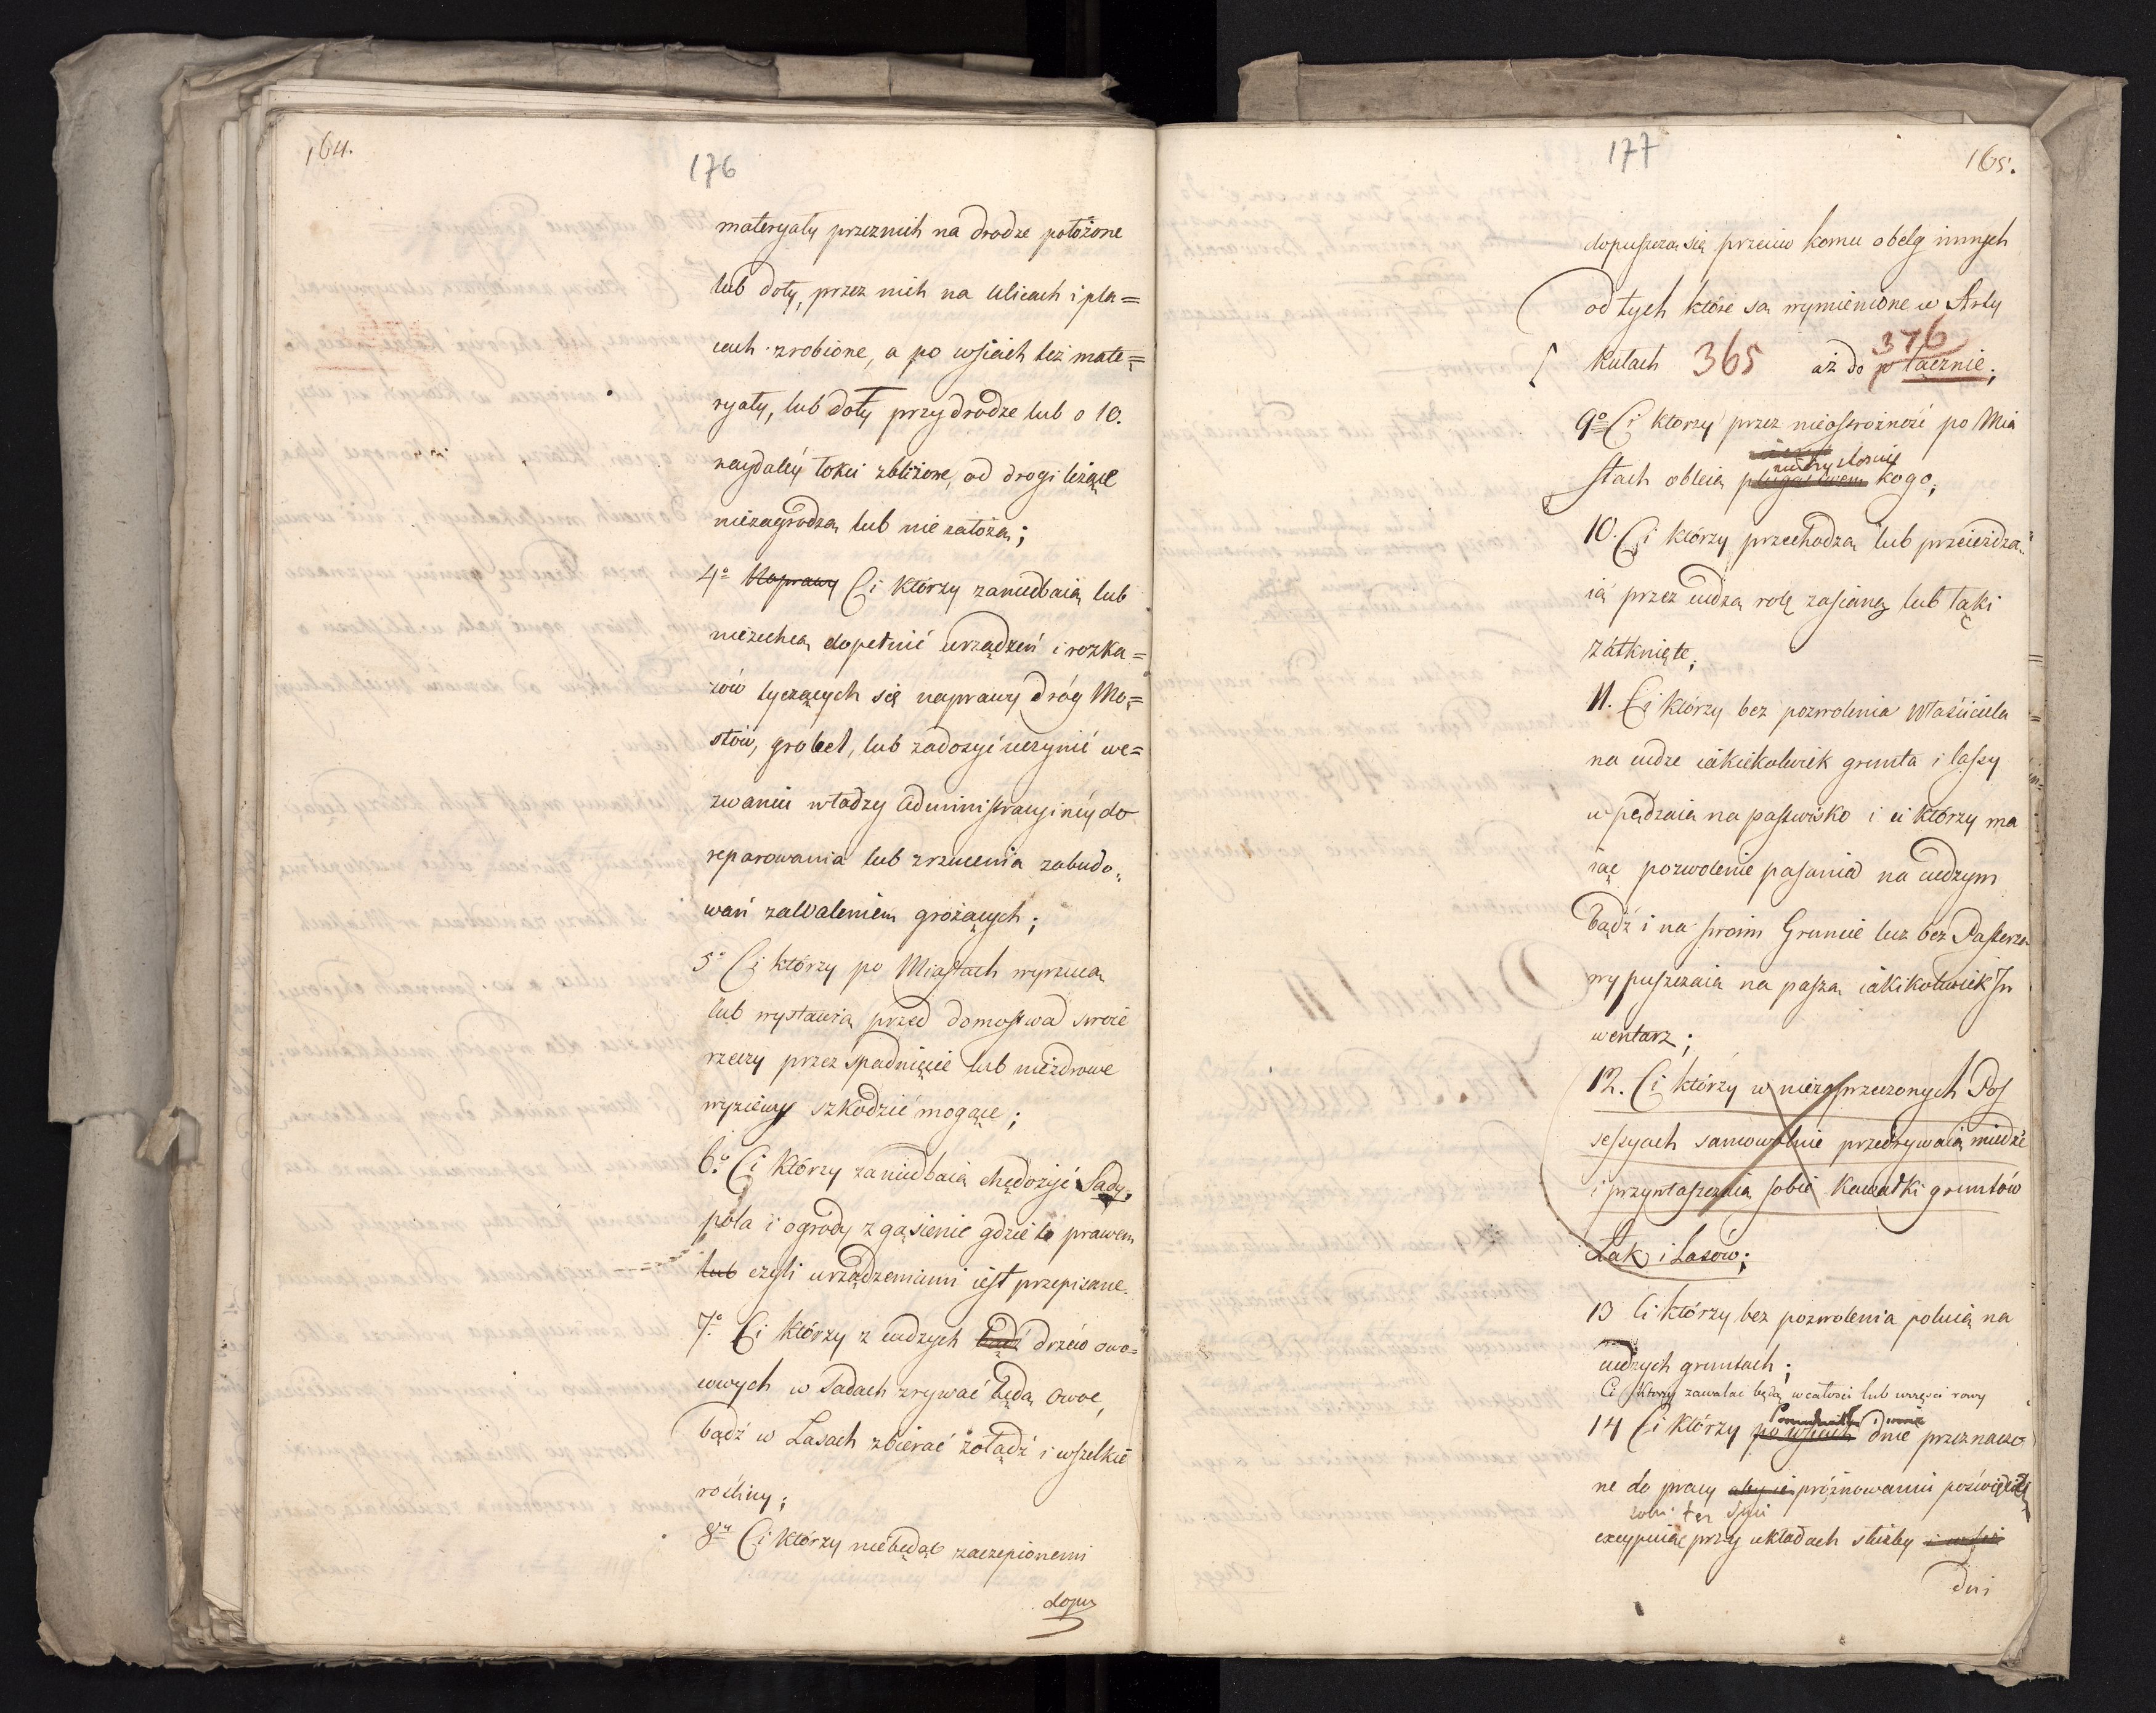 164.
176
materyały przeznich na drodze położone
lub doły, przez nich na Ulicach i pla=
cach zrobione, a po wsiach też mate=
ryały, lub doły przy drodze lub o 10.
naydaléy łokci zbliżone, od drogi leżące
niezagrodzą lub nie założą;
4º Naprawy Ci którzy zaniedbaią lub
niezechcą dopełnić urządzeń i rozka=
zów tyczących się naprawy dróg Mo=
stów, grobel, lub zadosyć uczynić we=
zwaniu władzy Administracyinéy do
reparowania lub zrzucenia zabudo=
wań zawaleniem grożących;
5º Ci którzy po Miastach wyrzucą
lub wystawią przed domostwa swoie
rzeczy przez spadnięcie lub niezdrowe
wyziewy szkodzić mogące;
6º Ci którzy zaniedbaią chędożyć Sady,
pola i ogrody z gąsienic gdzie to prawem
lub czyli urządzeniami iest przepisane.
7º Ci którzy z cudzych bądź drzew owo=
cowych w Sadach zrywać będą owoc,
bądź w Lasach zbierać żołądź i wszelkie
rośliny;
8º Ci którzy niebędąc zaczepionemi
dopu
177
165.
dopuszczą się przeciw komu obelg innych
od tych które są wymienione w Arty
kułach 365 aż do 376 włącznie;
9º Ci ktorzy przez nieostrożność po Mia
stach obleią plugastwem nieczystością kogo;
10. Ci którzy przechodzą lub przeieżdża=
ią przez cudzą rolę zasianą lub łąki
zatknięte;
11. Ci którzy bez pozwolenia właściciela
na cudze iakiekolwiek grunta i lassy
wpędzaią na pastwisko i ci którzy ma
iąc pozwolenie pasania na cudzym
bądź i na swoim Gruncie lecz bez Pasterza
wypuszczaią na paszą iakikolwiek In
wentarz;
12. Ci którzy w niezaprzeczonych Pos
sessyach samowolnie przeorywaią miedze
i przywłaszczaią sobie kawałki gruntów
Łąk i Lasów;
13 Ci którzy bez pozwolenia poluią na
cudzych gruntach;
Ci ktorzy zawalać będą w całości lub w części rowy
14 Ci którzy po wsiach dnie przeznaczo
ne do pracy próżnowaniu poświęcą
excypuiąc przy układach służby
dni